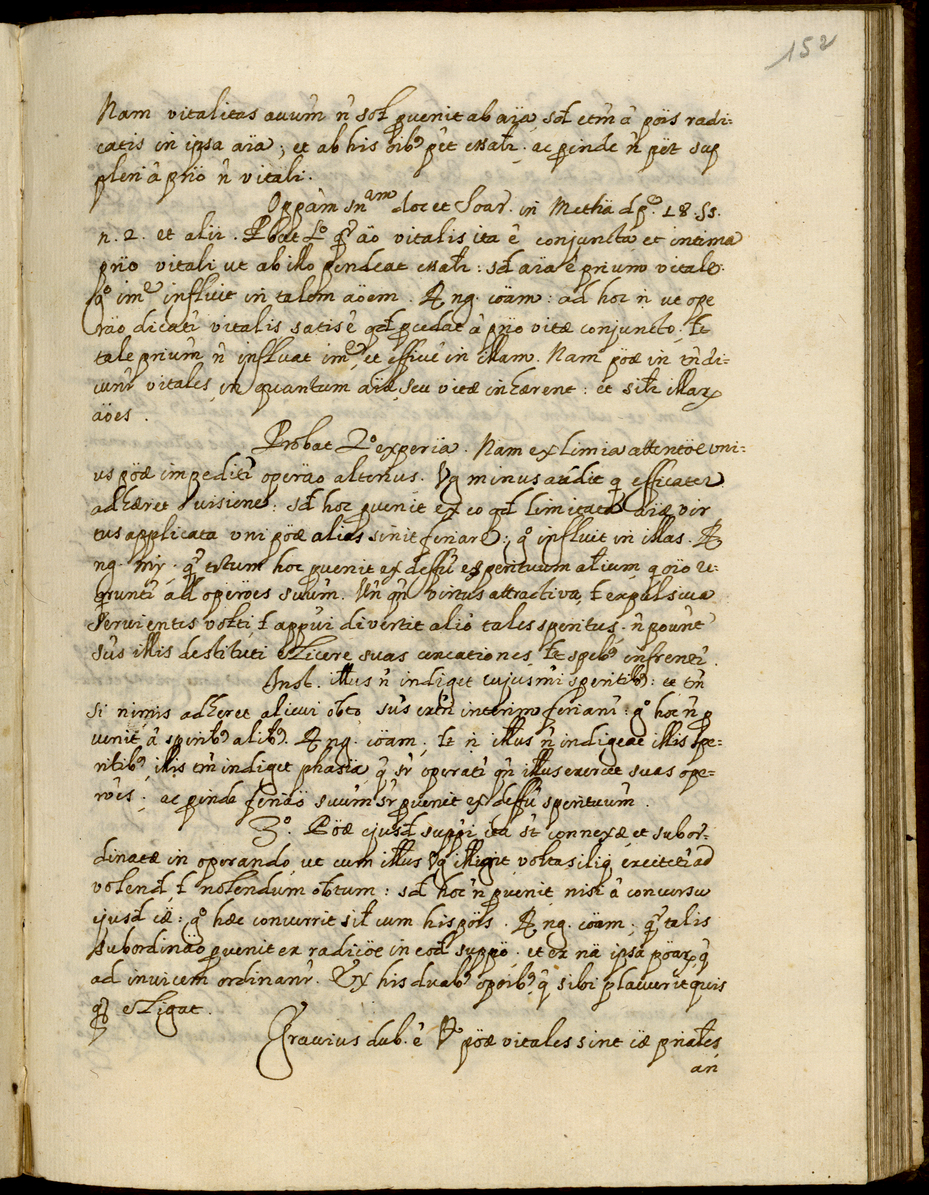 152
Nam vitalitas auum̃ ñ sol̃ puenit ab aïa, sed etm̃ â pöis radi:
catis in ipsa aïa; et ab his oib9 pẽt essalr̃. ac pinde ñ pẽt sup
pleri â prïo ñ vitali.
Oppam̃ sn̄am docet Soar. in Metha dp. 18. ss.
n. 2. et alii. Pbat 1o qr̃ äo vitalis ita ê conjuncta et intima
prïo vitali ut ab illo pendeat essalr̃: sed aïa ê prium vitale.
go ime influit in talem äoem. R ng. cöam: ad hoc ñ ut ope
räo dicatr̃ vitalis satis ê qd pcedat â prïo vitæ conjuncto, lt
tale prium̃ ñ influat ime, et effiue in illam. Nam pöæ in tñ di:
cunr̃ vitales, in quantum aïæ, seu vitæ inhærent: et silr̃ illar
äoes.
Probat 2o experïa. Nam eximia attentöe uni:
us pöæ impeditr̃ operäo alterius. Vg minus audit q efficater
adhæret visione: sed hoc puenit ex eo qd limitata aïæ vir
tus applicata uni pöæ alias sinit feriare; go influit in illas. R
ng. mr̃. qr̃ totum hoc puenit ex deffũ sperituum alium, q oïo re:
qrunt̃r ad operöes suum̃. Un qñ virtus attractiva, t expulsiua
seruientis volti, t appũi divertit alio tales speritus. ñ pount̃
sũs illis destituti elicere suas cencationes, lt speb9 infrenr̃.
Inst. illus ñ indiget cujusmi speritib9: et tñ
si nimis adheret alicui obto sũs extñ interim ferianr̃: go hoc ñ p
uenit â speritb9 alib9. R ng. cöam; lt ñ illus ñ indigeat illis spe:
ritib9, illis tm̃ indiget phasïa q̃ sr̃ operatr̃ qñ illus exercet suas ope:
röes; ac pinde feriäo suum̃ sr̃ puenit ex deffũ sperituum̃.
3o. Pöæ ejusd suppi ita sт̃ connexæ, et subor:
dinatæ in operando, ut cum illus Vg illigit voltas iliq excitetr̃ ad
volend, t nolendum obtum: sed hoc ñ puenit nisi â concursu
ejusd iæ: go hæc concurrit sil̃ cum his pöis. R ng. cöam; qr̃ talis
subordinäo puenit ex radicöe in eod suppo. et ex nã ipsa pöar, q̃
ad invicem ordinanr̃. Ex his duab9 opoib9, q̃ sibi placuerit quis
q eligat.
Gravius dub. ê Vt pöæ vitales sint iæ prïales,
an